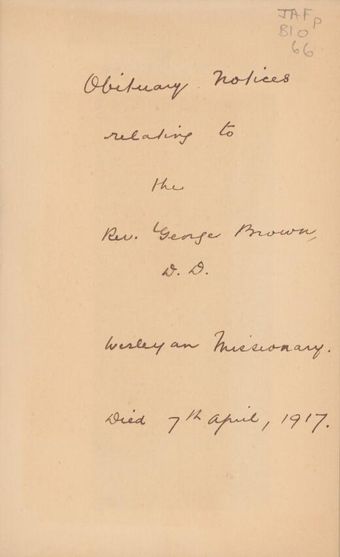 JAFp
BIO
66
Obituary Notices
relating to
the
Rev. George Brown,
D.D.
Wesleyan Missionary.
Died 7th April, 1917.